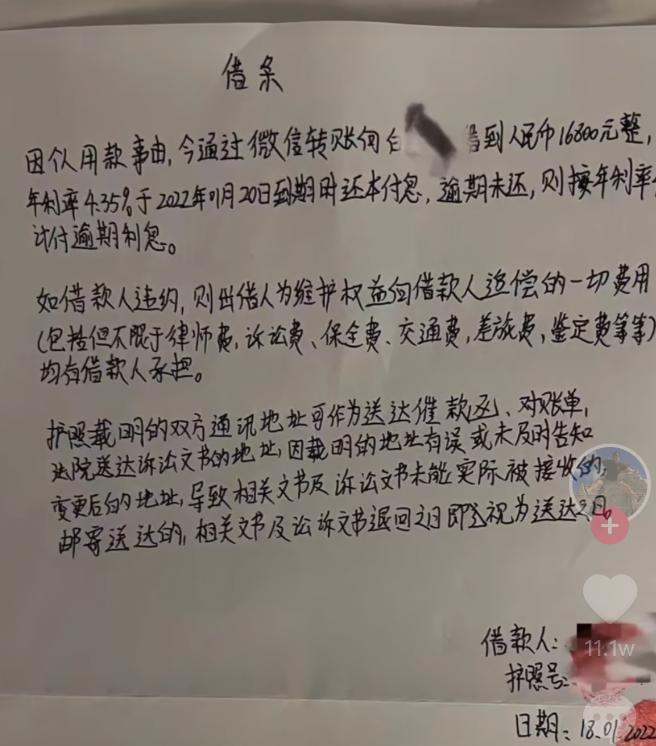 借条
因私用款事由,今通过微信转账向白 借到人民币16800元整,
年利率4.35%于2022年01月20日到期时还本付息,逾期未还,则按年利率
计付逾期利息。
如借款人违约,则出借人为维护权益向借款人追偿的一切费用
(包括但不限于律师费,诉讼费、保全费、交通费,差旅费,鉴定费等等)
均有借款人承担。
护照载明的双方通讯地址可作为送达催款函、对账单,
法院送达诉讼文书的地址,因载明的地址有误或未及时告知
变更后的地址,导致相关文书及诉讼文书未能实际被接收的,
邮寄送达的,相关文书及讼诉文书退回之日即视为送达之日。
借款人:
护照号:
日期:18.01.2022
11.1w